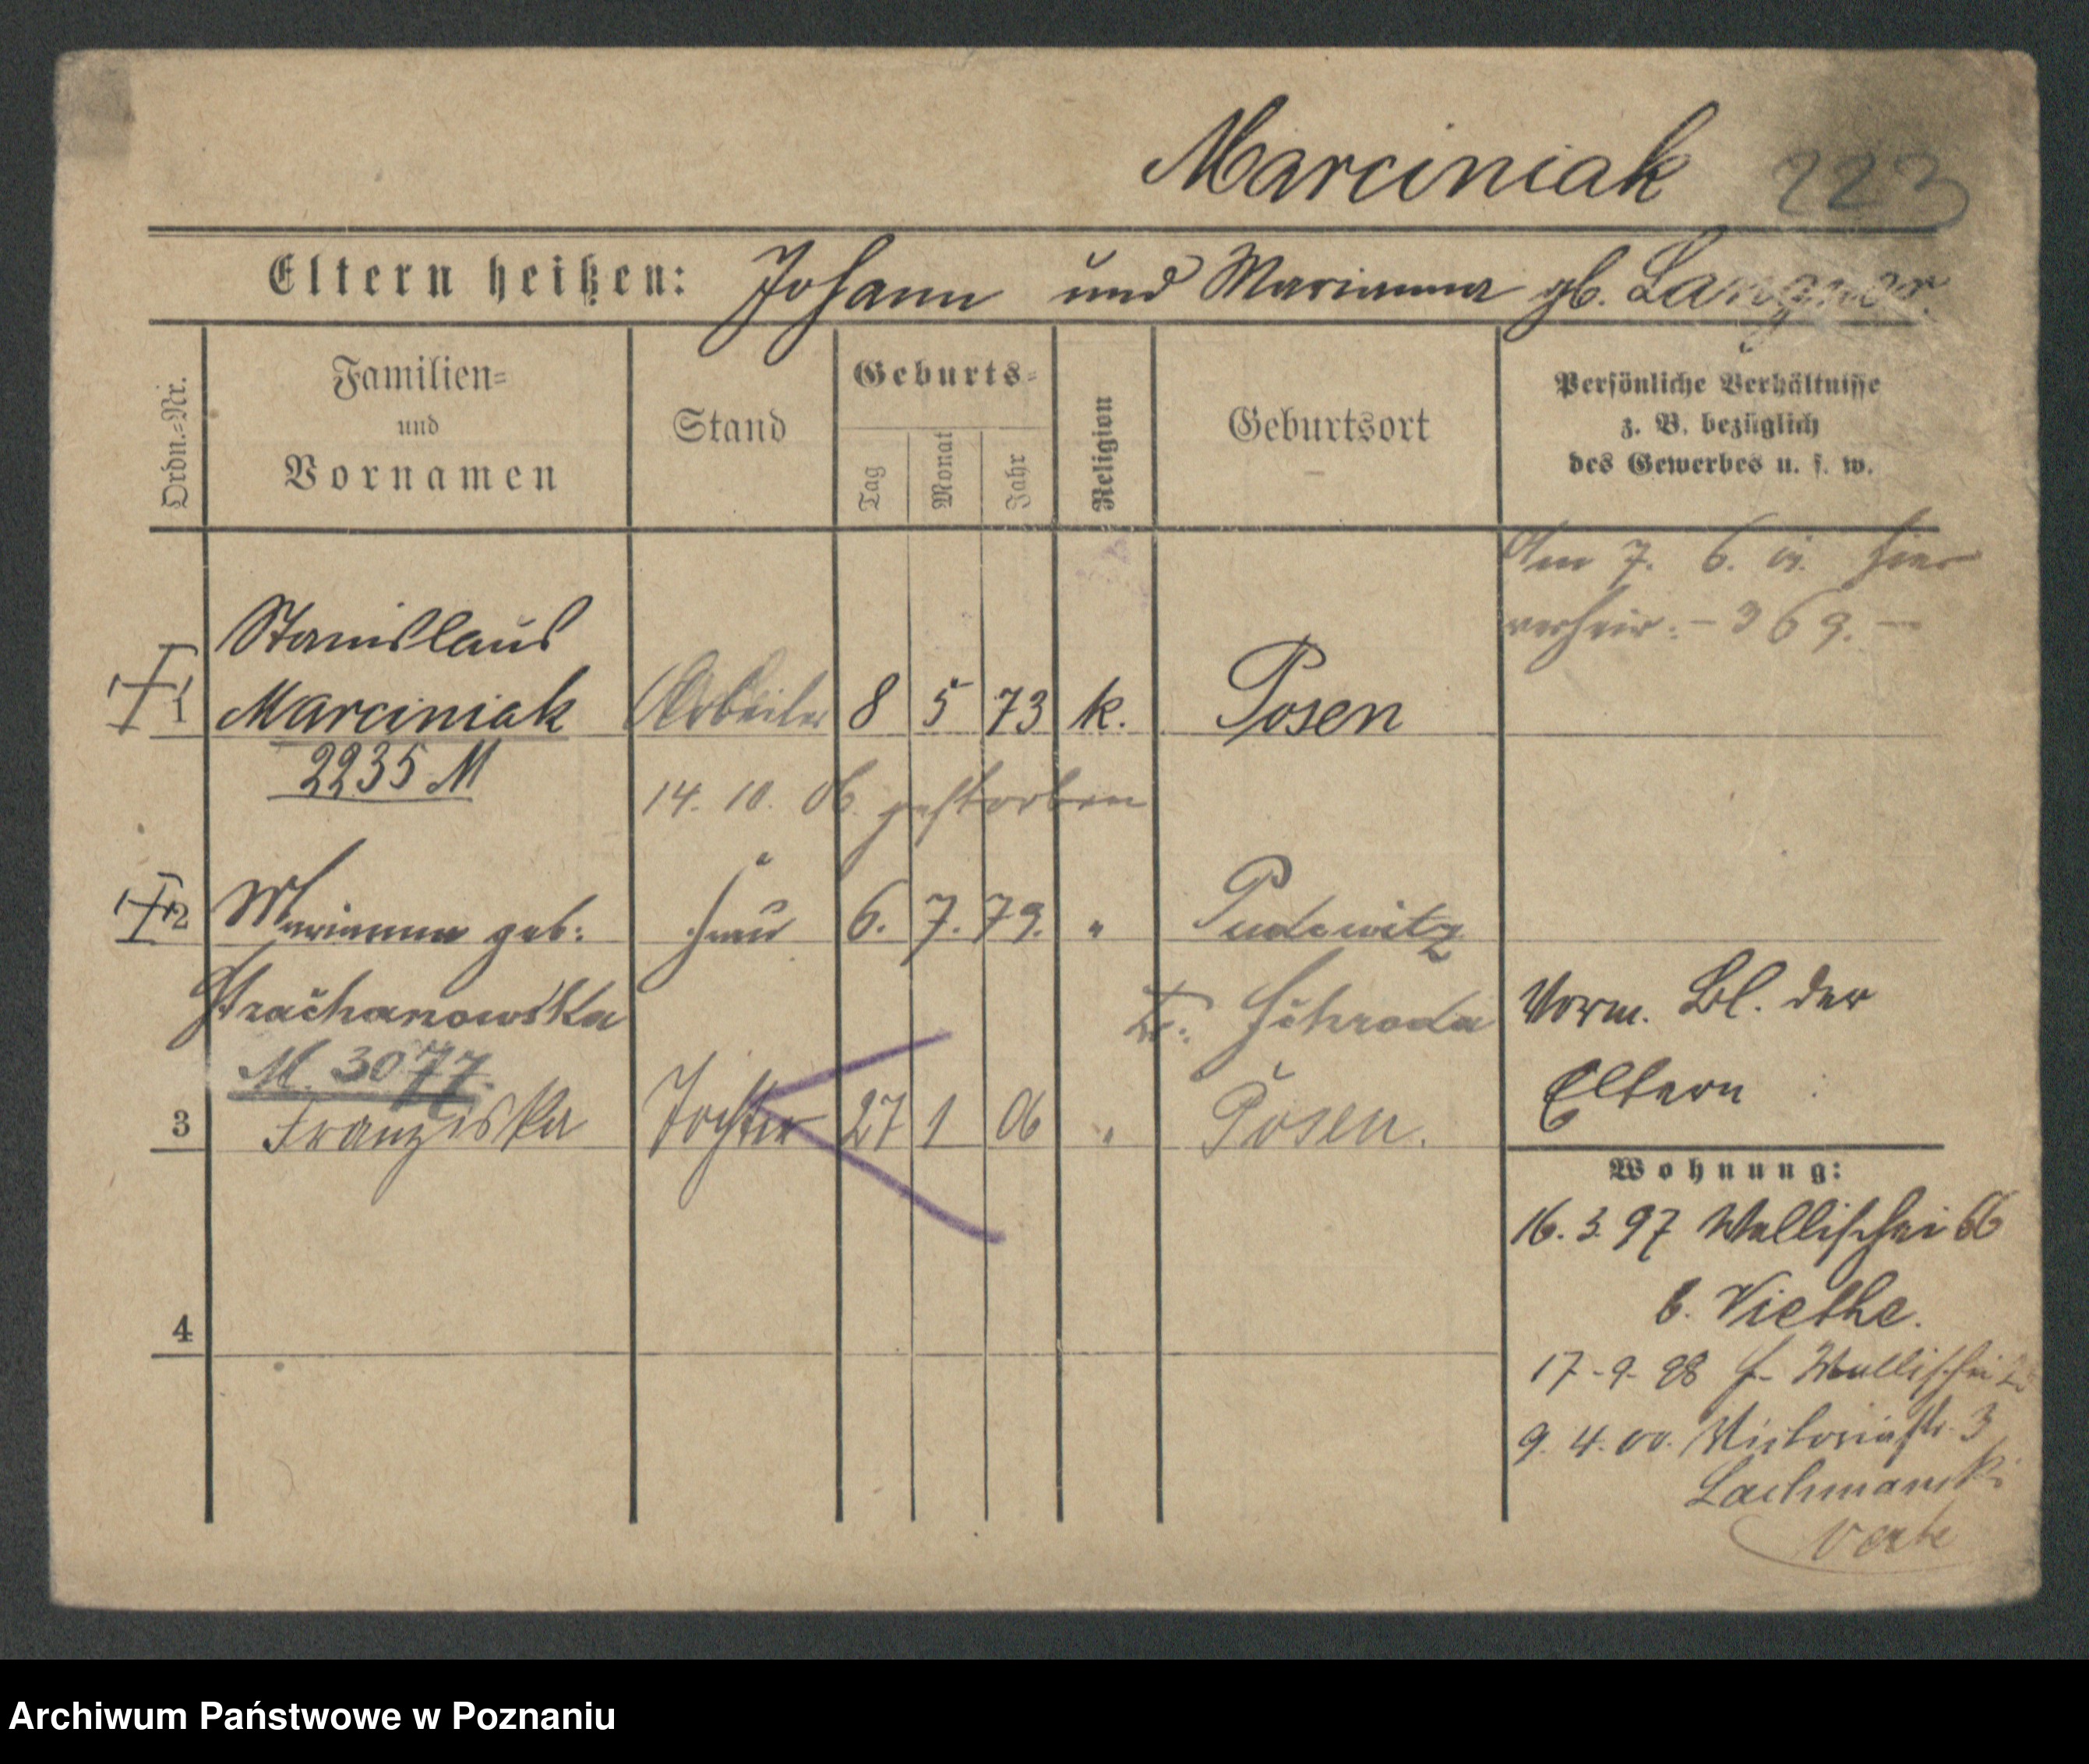 Marciniak 223
Eltern heißen: Johann und Marianna gb. Langner
Ordn.-Nr.
Familien-
und
Vornamen
Stand
Geburts-
Tag
Monat
Jahr
Religion
Geburtsort
Persönliche Verhältnisse
z. B. bezüglich
des Gewerbes u. s. w.
Am 7. 6. 01. hier
verheir. - 369. -
Stanislaus
1 Marciniak Arbeiter 8 5 73 k. Posen
2235 M
14. 10. 06. gestorben
2 Marianna geb: Frau 6. 7. 79. " Pudewitz
Strachanowska Kr. Schroda
M. 3077.
3 Franziska Tochter 27 1 06 " Posen.
Vorm. Bl. der
Eltern
Wohnung:
16. 3. 97 Wallischei 66
b. Viethe.
17-9-98 Wallischei
9. 4. 00. Victoriastr. 3
Lachmanski
verte
4
Archiwum Państwowe w Poznaniu